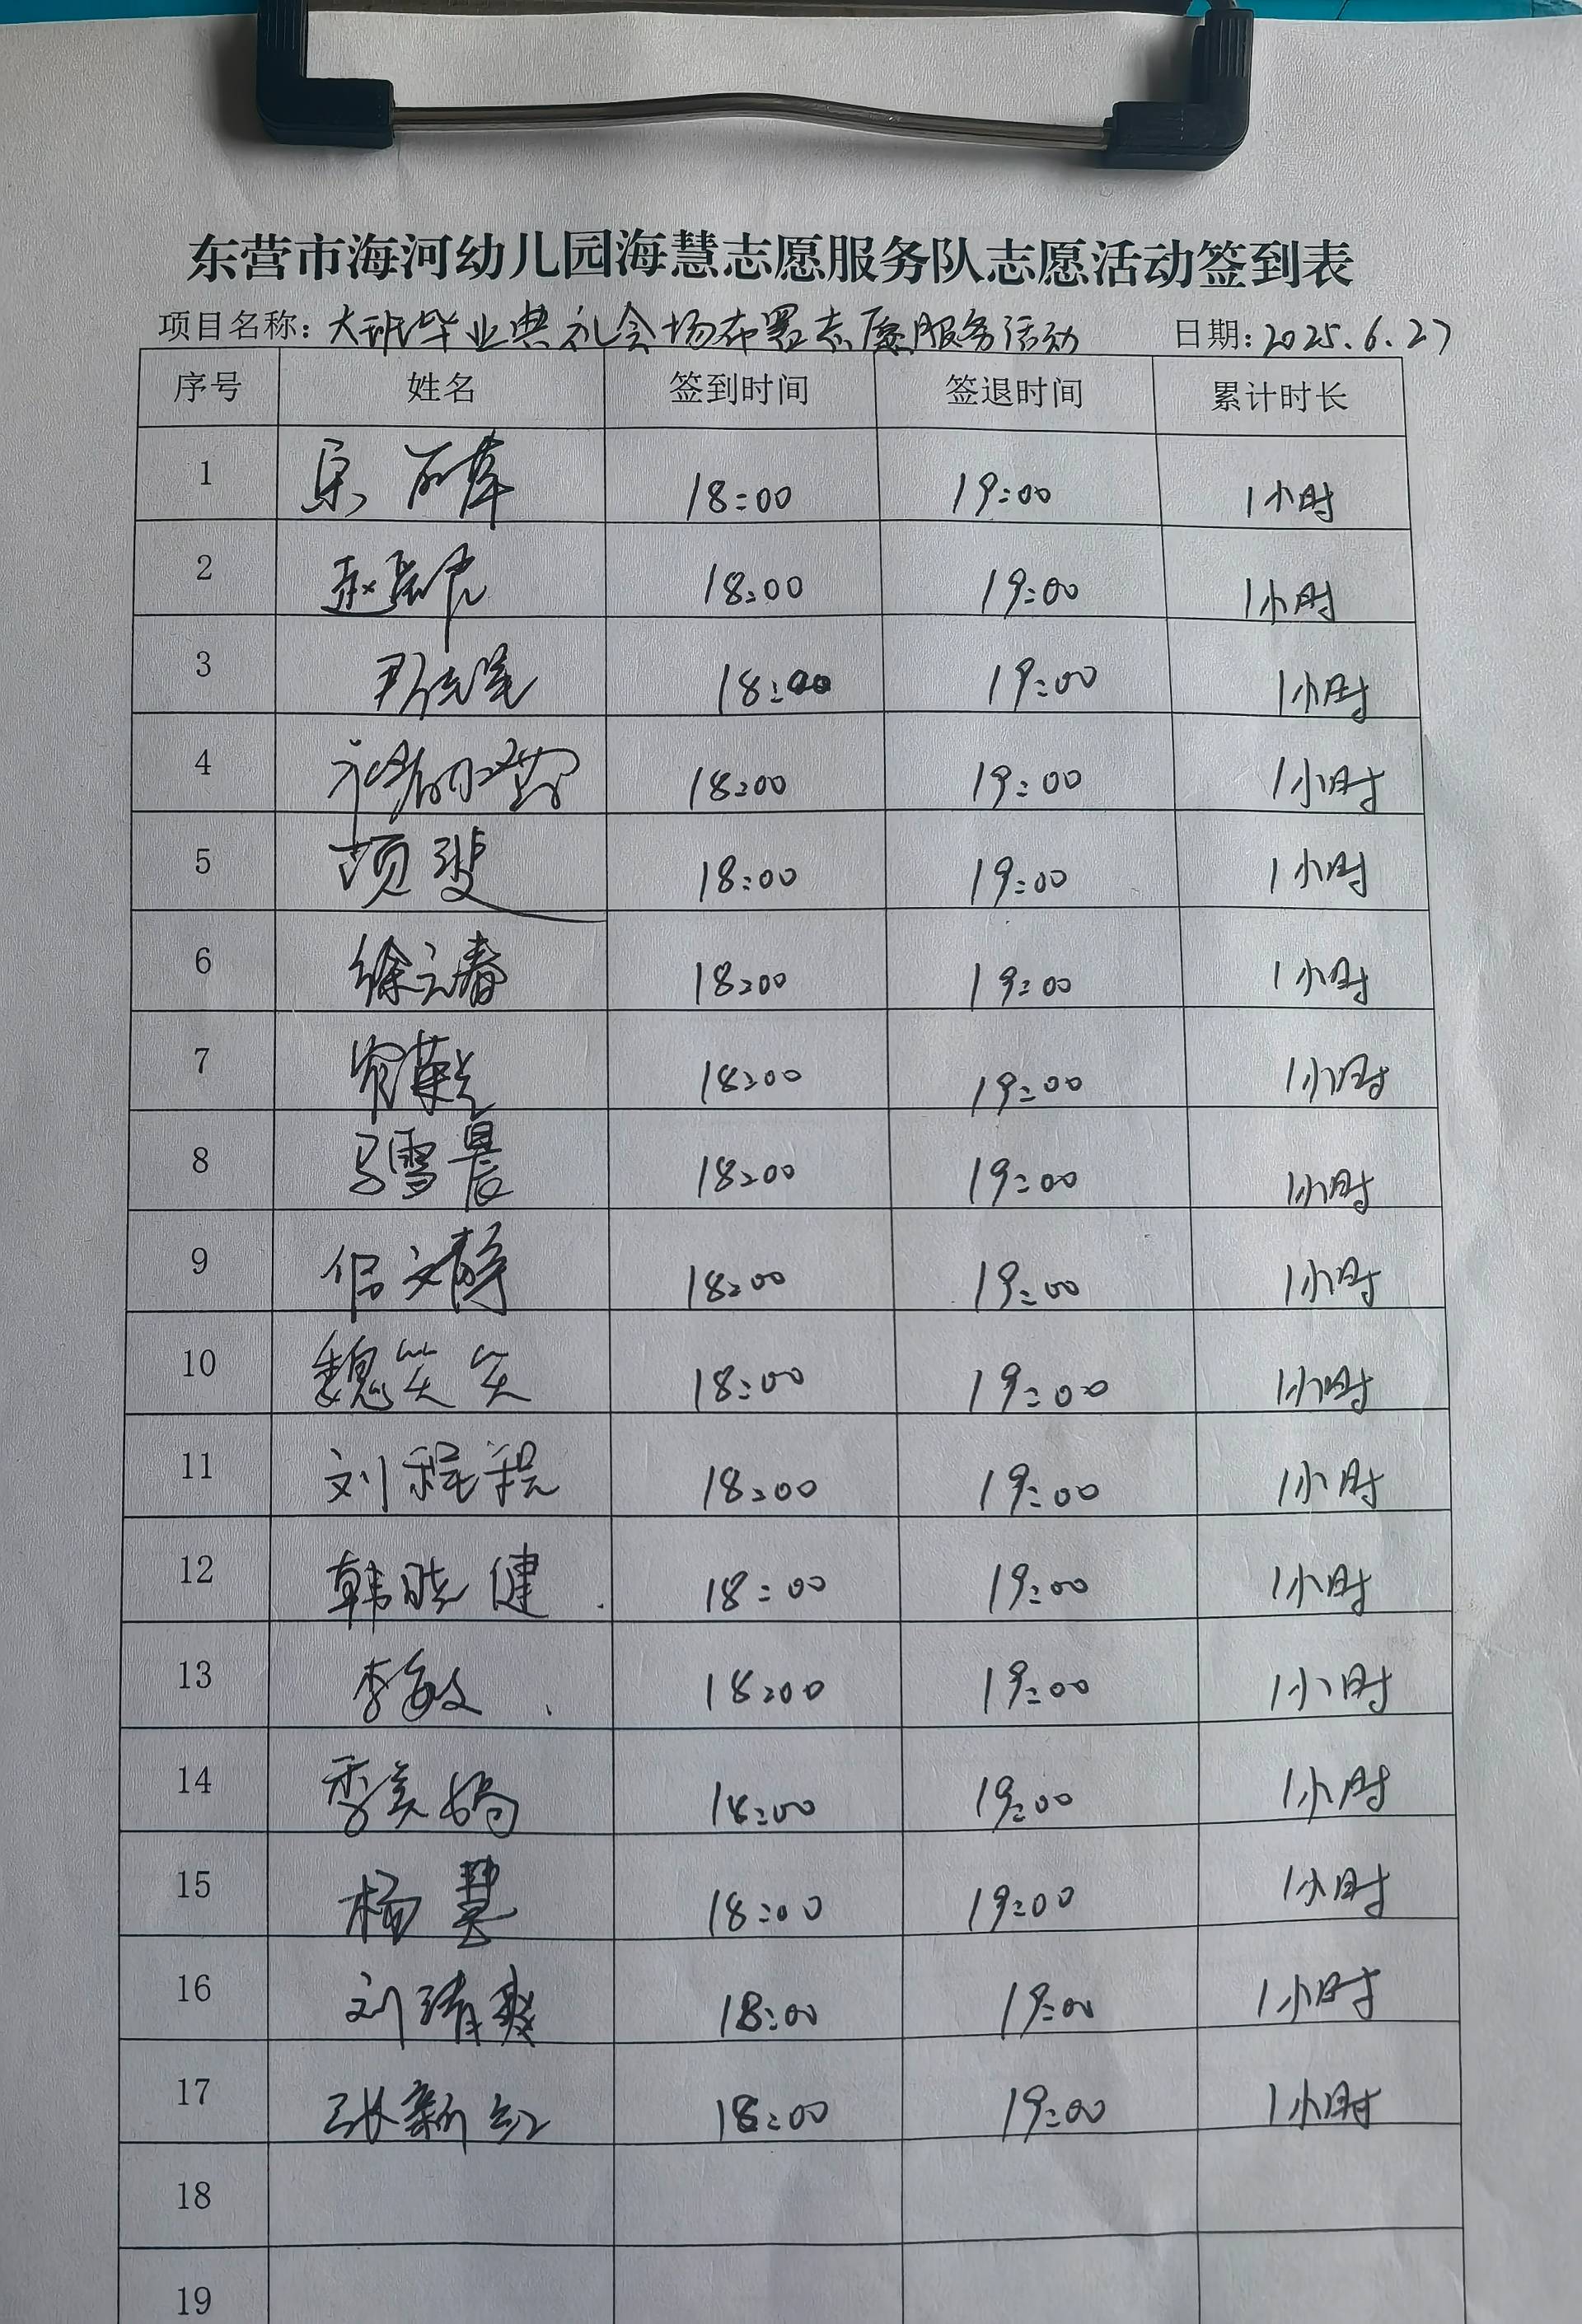 东营市海河幼儿园海慧志愿服务队志愿活动签到表
项目名称：大班毕业典礼会场布置志愿服务活动 日期：2025.6.27
序号 姓名 签到时间 签退时间 累计时长
1 18:00 19:00 1小时
2 赵 18:00 19:00 1小时
3 18:00 19:00 1小时
4 18:00 19:00 1小时
5 项斐 18:00 19:00 1小时
6 徐云春 18:00 19:00 1小时
7 18:00 19:00 1小时
8 马雪晨 18:00 19:00 1小时
9 侣文静 18:00 19:00 1小时
10 魏笑笑 18:00 19:00 1小时
11 刘程程 18:00 19:00 1小时
12 韩晓健 18:00 19:00 1小时
13 李敏 18:00 19:00 1小时
14 季美娟 18:00 19:00 1小时
15 杨慧 18:00 19:00 1小时
16 刘靖爽 18:00 19:00 1小时
17 张新红 18:00 19:00 1小时
18
19